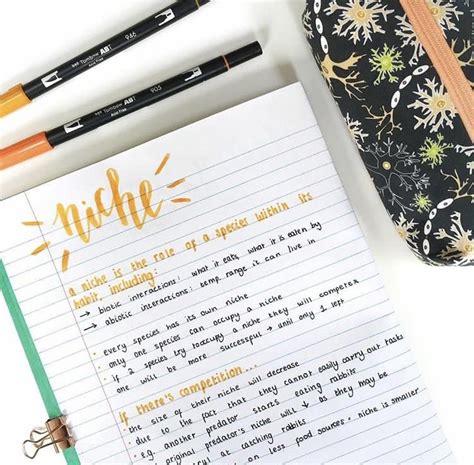 946
Tombow ABT
905
Tombow ABT
niche
a niche is the role of a species within its
habit, including:
→ biotic interactions: what it eats, what it is eaten by
→ abiotic interactions: temp. range it can live in
• every species has its own niche
• only one species can occupy a niche
• if 2 species try to occupy a niche they will compete x
one will be more successful → until only 1 left
if there's competition...
• the size of their niche will decrease
• due to the fact that they cannot easily carry out tasks
• e.g. another predator starts eating rabbits
original predator's niche will ↓ as they may be
at catching rabbits
on less food sources • niche is smaller